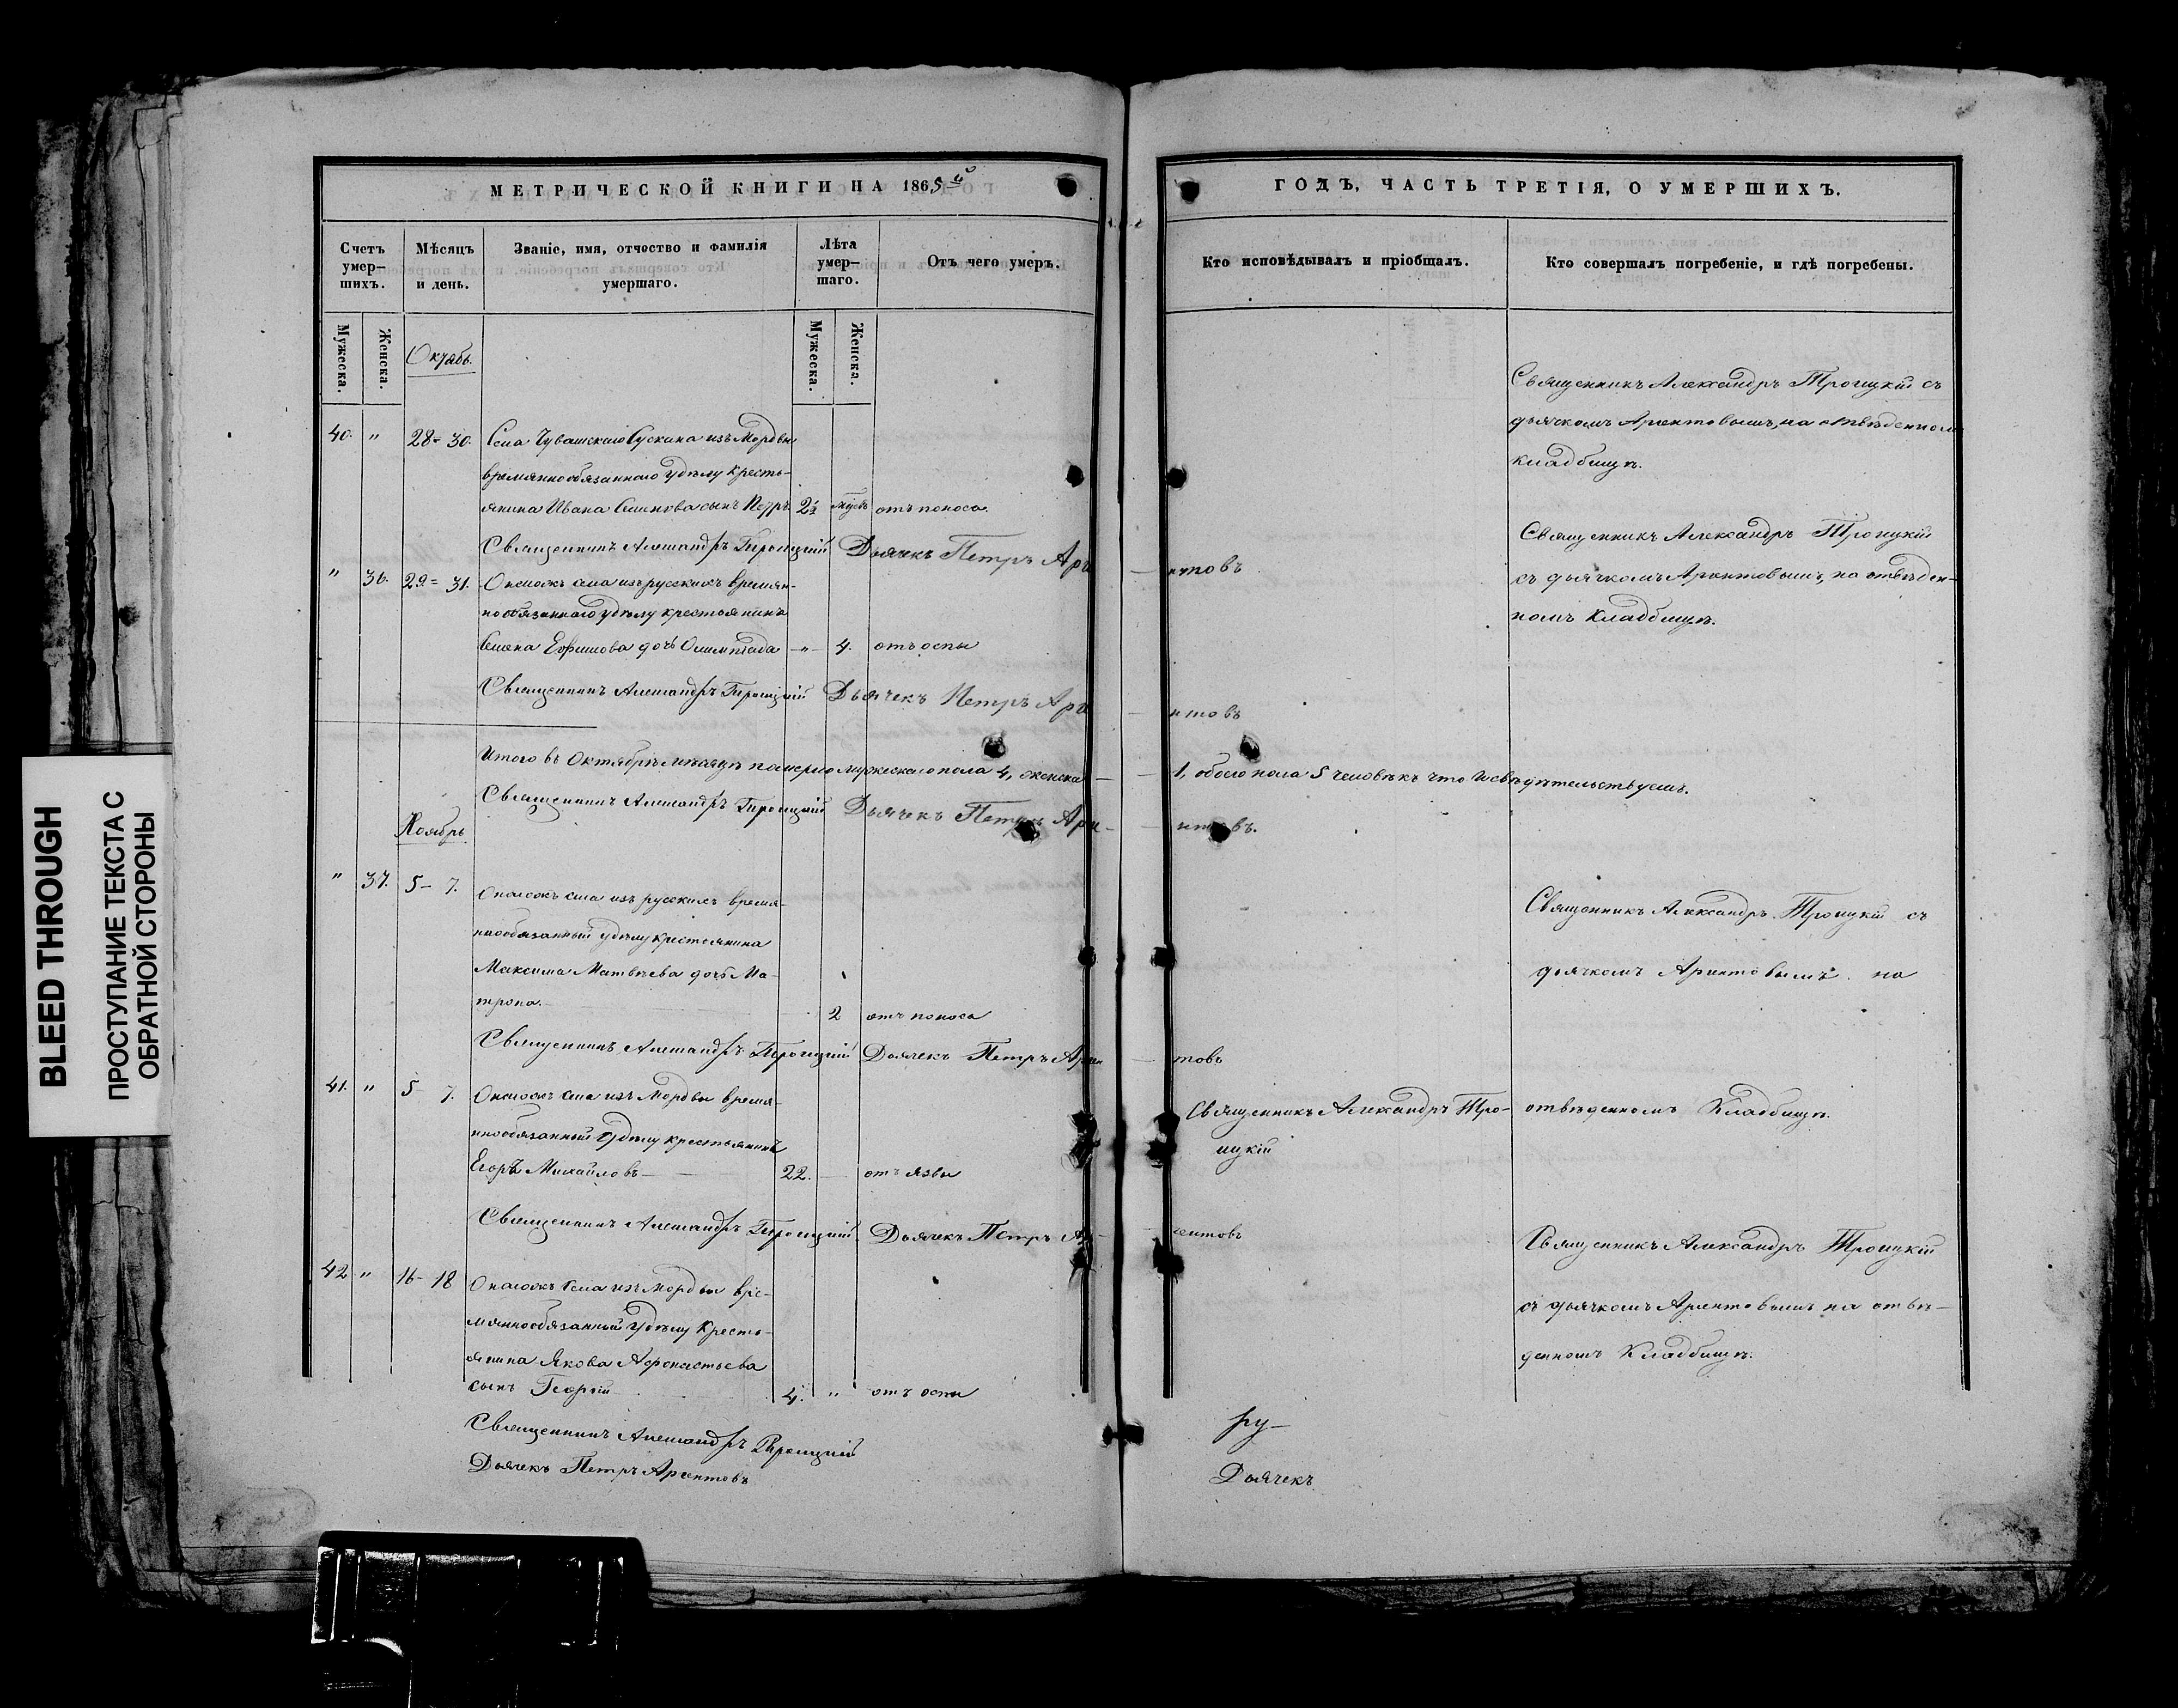 BLEED THROUGH
ПРОСТУПАНИЕ ТЕКСТА С
ОБРАТНОЙ СТОРОНЫ
МЕТРИЧЕСКОЙ КНИГИ НА 1865-го
Счетъ умер-
шихъ.
Мѣсяцъ
и день.
Званіе, имя, отчество и фамилія
умершаго.
Лѣта
умер-
шаго.
Отъ чего умеръ.
Мужеска.
Женска.
Мужеска.
Женска.
Октябь.
40. " 28- 30. Села Чувашскаго Сускана изъ Мордвы
времяннообязаннаго удѣлу кресть-
янина Ивана Семенова сынъ Петръ 2½ отъ поноса.
Священникъ Александръ Троицкій Дьячекъ Петръ Ар
" 36. 29- 31. Онагожъ села изъ русскихъ времян-
нообязаннаго удѣлу крестьянина
Семена Ефимова дочь Олимпіада - " - 4. отъ оспы
Священникъ Александръ Троицкій Дьячекъ Петръ Ар
Итого въ Октябрѣ мѣсяцѣ померло мужескаго пола 4, женска-
Священникъ Александръ Троицкій Дьячекъ Петръ Ари-
Ноябрь
" 37. 5- 7. Онагожъ села изъ русскихъ времян-
нообязанный удѣлу крестьянина
Максима Матвѣева дочь Ма-
трона. 2 отъ поноса
Священникъ Александръ Троицкій Дьячекъ Петръ Арен
41. " 5 7. Онагожъ села изъ Мордвы времян-
нообязанный удѣлу крестьянинъ
Егоръ Михайловъ 22. отъ язвы
Священникъ Александръ Троицкій Дьячекъ Петръ Ар
42 " 16- 18 Онагожъ села изъ Мордвы вре-
мяннообязанный удѣлу кресть-
янина Якова Афонастьева
сынъ Георгій 4. " отъ оспы
Священникъ Александръ Троицкій
Дьячекъ Петръ Арентовъ
ГОДЪ, ЧАСТЬ ТРЕТІЯ, О УМЕРШИХЪ.
Кто исповѣдывалъ и пріобщалъ.
Кто совершалъ погребеніе, и гдѣ погребены.
Священникъ Александръ Троицкій съ
дьячкомъ Арентовымъ, на отвѣденномъ
кладбищѣ.
нтовъ
Священникъ Александръ Троицкій
съ дьячкомъ Арентовымъ, на отвѣден-
номъ кладбищѣ.
нтовъ
1, обоего пола 5 человѣкъ что и свѣдѣтельствуемъ.
нтовъ.
Священникъ Александръ Троицкій съ
дьячкомъ Арентовымъ на
товъ
Священникъ Александръ Тро-
ицкій
отвѣденномъ Кладбищѣ.
ентовъ
Священникъ Александръ Троицкій
съ дьячкомъ Арентовымъ на отвѣ-
денномъ Кладбищѣ.
ру-
Дьячекъ